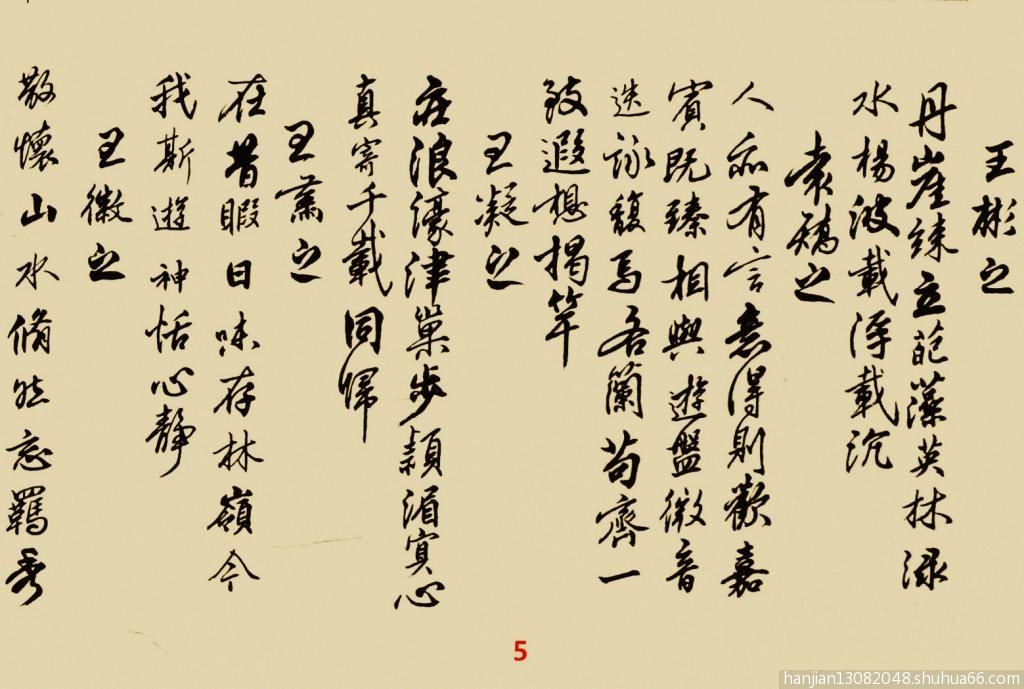 王彬之
丹崖竦立葩藻英林渌
水楊波載浮載沉
袁矯之
人亦有言意得則歡嘉
賓既臻相與遊盤微音
迭詠馥焉若蘭苟齊一
致遐想揭竿
王凝之
莊浪濠津巢步潁湄冥心
真寄千載同歸
王肅之
在昔暇日味存林嶺今
我斯遊神恬心靜
王徽之
散懷山水脩然忘羈秀
5
hanjian13082048.shuhua66.com